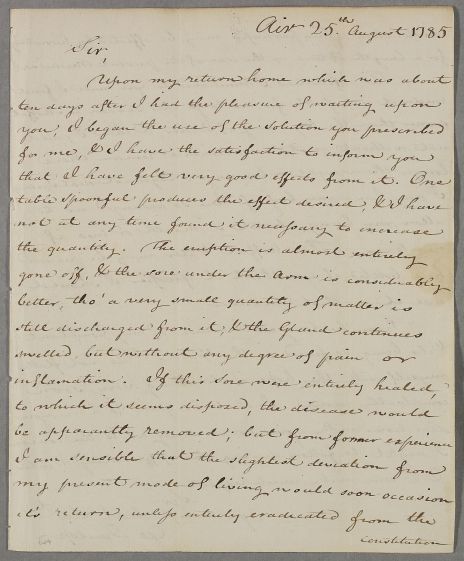 Air 25.th August 1785
Sir,
Upon my return home which was about
ten days after I had the pleasure of waiting upon
you, I began the use of the solution you prescribed
for me, & I have the satisfaction to inform you
that I have felt very good effects from it. One
table spoonful produces the effect desired, & I have
not at any time found it necessary to increase
the quantity. The eruption is almost entirely
gone off, & the sore under the Arm is considerably
better, tho' a very small quantity of matter is
still discharged from it, & the Gland continues
swelled, but without any degree of pain or
inflamation. If this Sore were entirely healed,
to which it seems disposed, the disease would
be apparantly removed; but from former experience
I am sensible that the slightest deviation from
my present mode of living would soon occasion
it's return, unless entirely eradicated from the
constitution